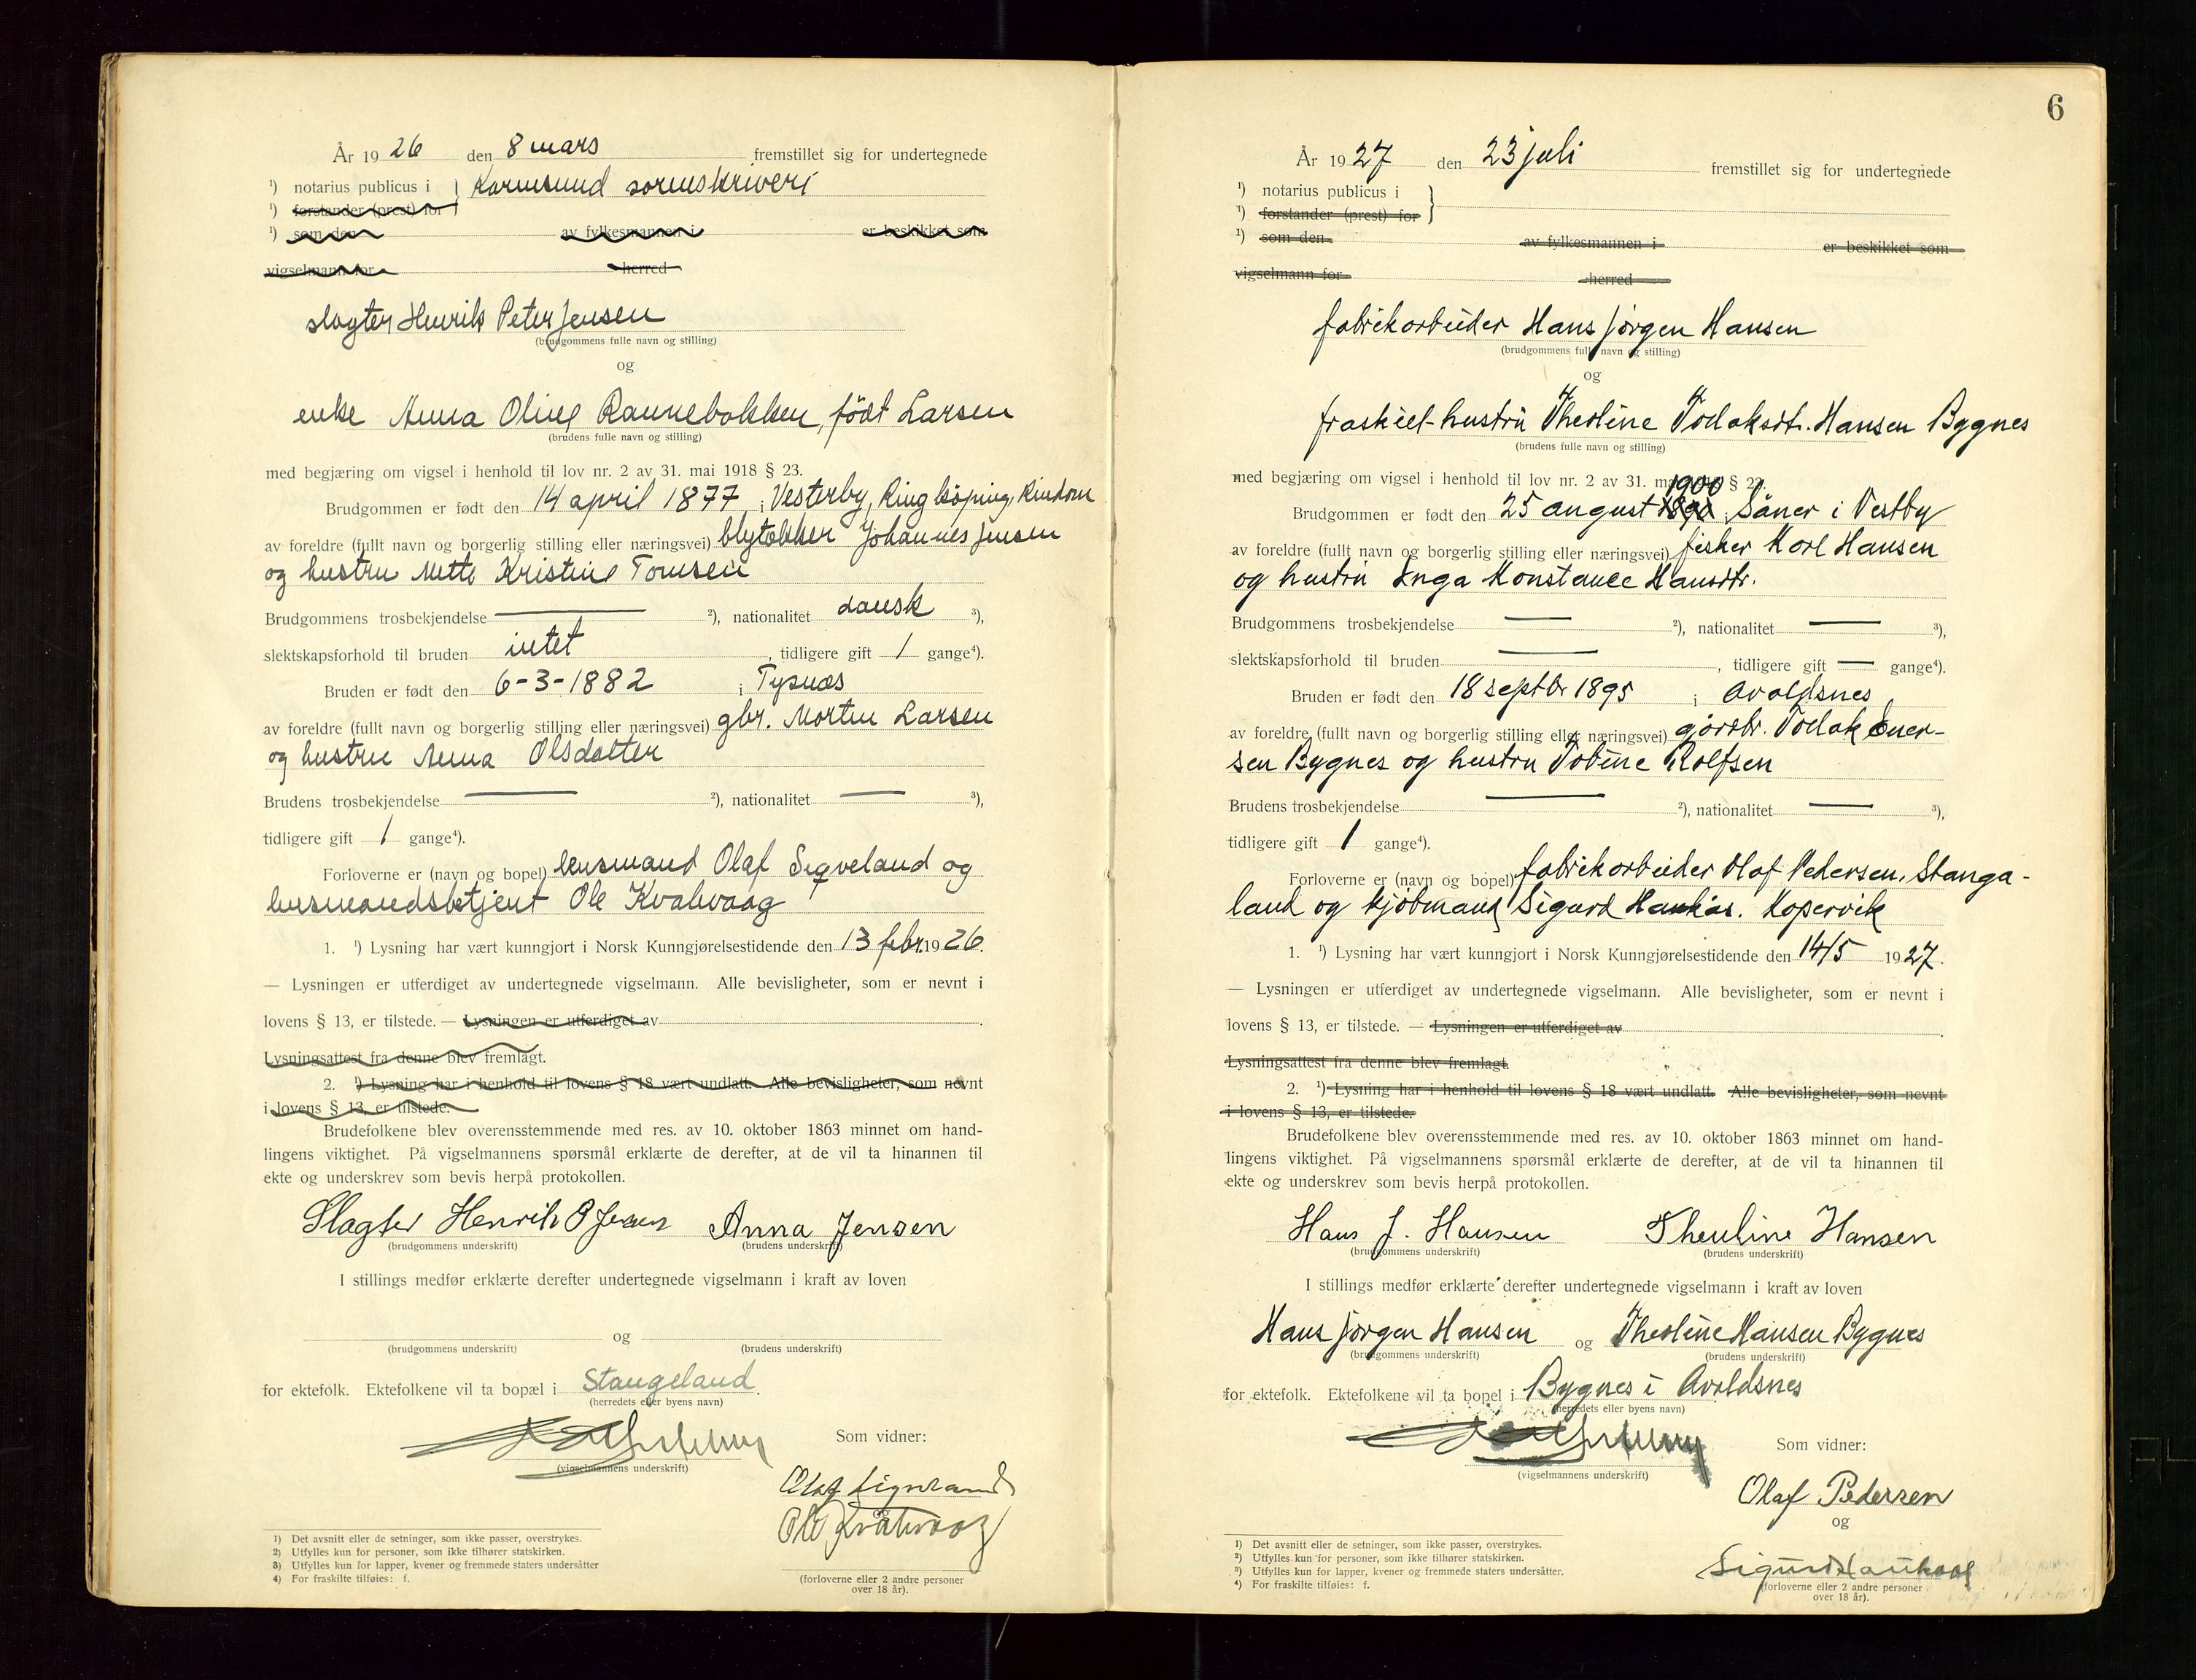 År 1926 den 8 mars fremstillet sig for undertegnede
¹) notarius publicus i } Karmsund sorenskriveri
¹) forstander (prest) for
¹) som den av fylkesmannen i er beskikket som
vigselmann for herred
slagter Henrik Peter Jensen
(brudgommens fulle navn og stilling)
og
enke Anna Oline Rannebakken, født Larsen
(brudens fulle navn og stilling)
med begjæring om vigsel i henhold til lov nr. 2 av 31. mai 1918 § 23.
Brudgommen er født den 14 april 1877 i Vesterby, Ringkjøping, Rindom
av foreldre (fullt navn og borgerlig stilling eller næringsvei) blytækker Johannes Jensen
og hustru Mette Kristine Tomsen
Brudgommens trosbekjendelse — ²), nationalitet dansk ³),
slektskapsforhold til bruden intet, tidligere gift 1 gange⁴).
Bruden er født den 6-3-1882 i Tysnæs
av foreldre (fullt navn og borgerlig stilling eller næringsvei) gbr. Morten Larsen
og hustru Anna Olsdatter
Brudens trosbekjendelse — ²), nationalitet — ³),
tidligere gift 1 gange⁴).
Forloverne er (navn og bopel) lensmand Olaf Sigveland og
lensmandsbetjent Ole Kvalevaag
1. ¹) Lysning har vært kunngjort i Norsk Kunngjørelsestidende den 13 febr. 1926.
— Lysningen er utferdiget av undertegnede vigselmann. Alle bevisligheter, som er nevnt i
lovens § 13, er tilstede. — Lysningen er utferdiget av .
Lysningsattest fra denne blev fremlagt.
2. ¹) Lysning har i henhold til lovens § 18 vært undlatt. Alle bevisligheter, som nevnt
i lovens § 13, er tilstede.
Brudefolkene blev overensstemmende med res. av 10. oktober 1863 minnet om hand-
lingens viktighet. På vigselmannens spørsmål erklærte de derefter, at de vil ta hinannen til
ekte og underskrev som bevis herpå protokollen.
Slagter Henrik P Jensen Anna Jensen
(brudgommens underskrift) (brudens underskrift)
I stillings medfør erklærte derefter undertegnede vigselmann i kraft av loven
og
(brudgommens underskrift) (brudens underskrift)
for ektefolk. Ektefolkene vil ta bopæl i Stangeland.
(herredets eller byens navn)
Som vidner:
(vigselmannens underskrift)
Olaf Sigveland
Ole Kvalevaag
1) Det avsnitt eller de setninger, som ikke passer, overstrykes.
2) Utfylles kun for personer, som ikke tilhører statskirken.
3) Utfylles kun for lapper, kvener og fremmede staters undersåtter
4) For fraskilte tilføies: f.
(forloverne eller 2 andre personer
over 18 år).
6
År 1927 den 23 juli fremstillet sig for undertegnede
¹) notarius publicus i }
¹) forstander (prest) for
¹) som den av fylkesmannen i er beskikket som
vigselmann for herred
fabrikarbeider Hans Jørgen Hansen
(brudgommens fulle navn og stilling)
og
fraskilt hustru Theoline Todaksdt. Hansen Bygnes
(brudens fulle navn og stilling)
med begjæring om vigsel i henhold til lov nr. 2 av 31. mai § 23.
1900
Brudgommen er født den 25 august 1890 i Såner i Vestby
av foreldre (fullt navn og borgerlig stilling eller næringsvei) fisker Karl Hansen
og hustru Inga Konstance Hansdtr.
Brudgommens trosbekjendelse — ²), nationalitet — ³),
slektskapsforhold til bruden —, tidligere gift — gange⁴).
Bruden er født den 18 septbr 1895 i Avaldsnes
av foreldre (fullt navn og borgerlig stilling eller næringsvei) gårdbr. Todak Ener-
sen Bygnes og hustru Tobine Rolfsen
Brudens trosbekjendelse — ²), nationalitet — ³),
tidligere gift 1 gange⁴).
Forloverne er (navn og bopel) fabrikarbeider Olaf Pedersen, Stanga-
land og kjøbmand Sigurd Haukås. Kopervik
1. ¹) Lysning har vært kunngjort i Norsk Kunngjørelsestidende den 14/5 1927.
— Lysningen er utferdiget av undertegnede vigselmann. Alle bevisligheter, som er nevnt i
lovens § 13, er tilstede. — Lysningen er utferdiget av .
Lysningsattest fra denne blev fremlagt.
2. ¹) Lysning har i henhold til lovens § 18 vært undlatt. Alle bevisligheter, som nevnt
i lovens § 13, er tilstede.
Brudefolkene blev overensstemmende med res. av 10. oktober 1863 minnet om hand-
lingens viktighet. På vigselmannens spørsmål erklærte de derefter, at de vil ta hinannen til
ekte og underskrev som bevis herpå protokollen.
Hans J. Hansen Theoline Hansen
(brudgommens underskrift) (brudens underskrift)
I stillings medfør erklærte derefter undertegnede vigselmann i kraft av loven
Hans Jørgen Hansen og Theoline Hansen Bygnes
(brudgommens underskrift) (brudens underskrift)
for ektefolk. Ektefolkene vil ta bopel i Bygnes i Avaldsnes
(herredets eller byens navn)
Som vidner:
(vigselmannens underskrift)
Olaf Pedersen
og
Sigurd Haukaas
1) Det avsnitt eller de setninger, som ikke passer, overstrykes.
2) Utfylles kun for personer, som ikke tilhører statskirken.
3) Utfylles kun for lapper, kvener og fremmede staters undersåtter.
4) For fraskilte tilføies: f.
(forloverne eller 2 andre personer
over 18 år).